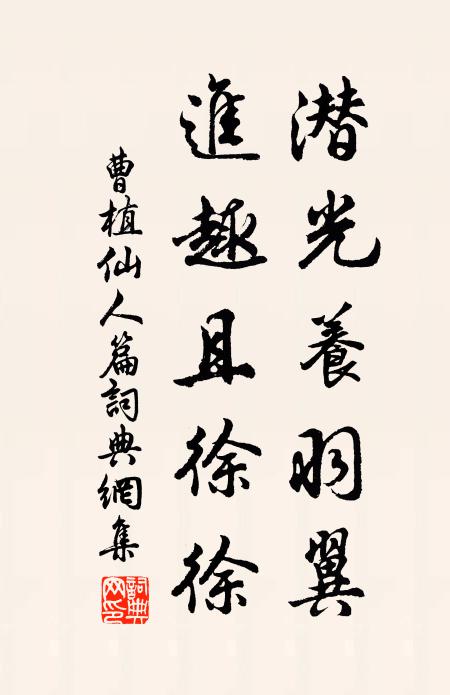 潜光養羽翼
進趣且徐徐
曹植仙人篇詞典網集
詞典网印